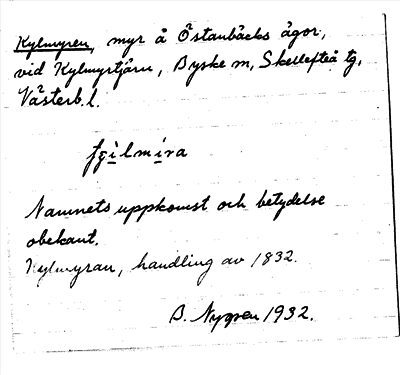 Kylmyren, myr å Östanbäcks ägor,
vid Kylmyrtjärn, Byske m, Skellefteå tg,
Västerb. l.
Namnets uppkomst och betydelse
obekant.
Kylmyran, handling av 1832.
B. Nygren 1932.